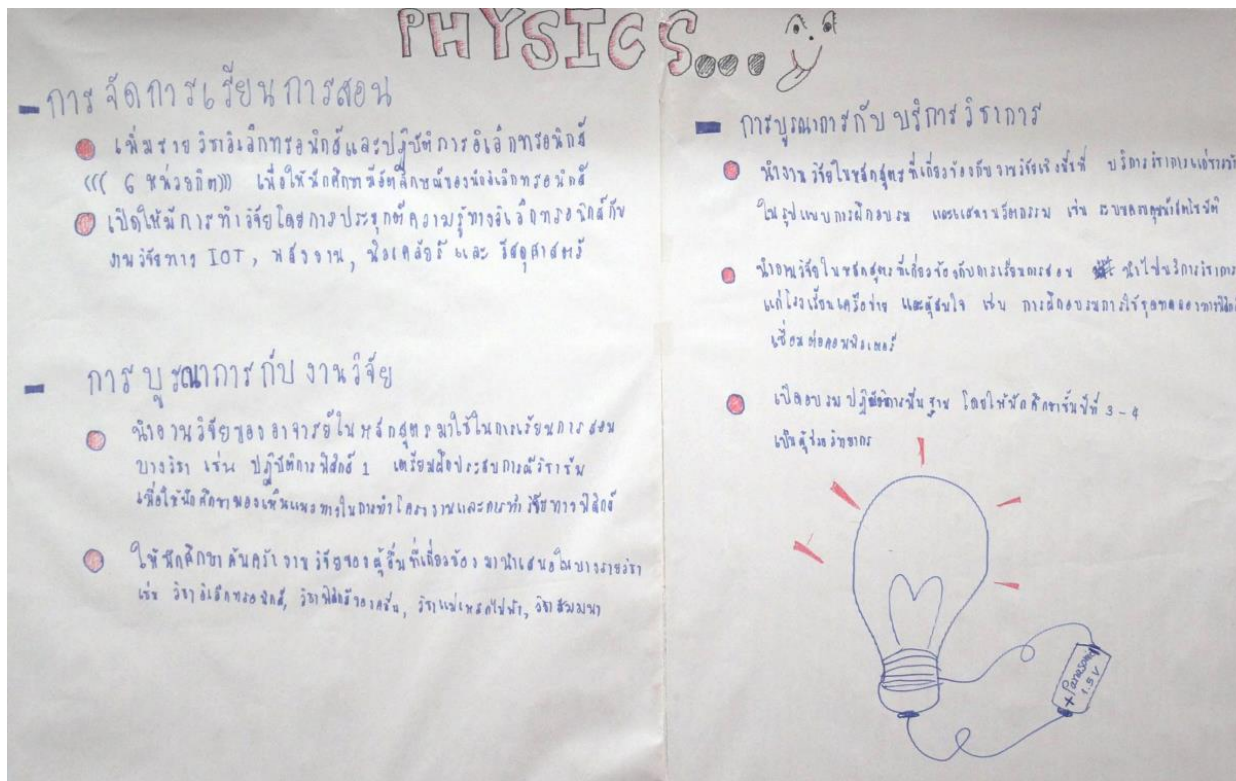 PHYSICS...
- การจัดการเรียนการสอน
เพิ่มรายวิชาอิเล็กทรอนิกส์และปฏิบัติการอิเล็กทรอนิกส์
((( 6 หน่วยกิต))) เพื่อให้นักศึกษามีอัตลักษณ์ของนักอิเล็กทรอนิกส์
เปิดให้มีการทำวิจัยโดยการประยุกต์ความรู้ทางอิเล็กทรอนิกส์กับ
งานวิจัยทาง IOT, พลังงาน, นิวเคลียร์ และ วัสดุศาสตร์
- การบูรณาการกับงานวิจัย
นำงานวิจัยของอาจารย์ในหลักสูตรมาใช้ในการเรียนการสอน
บางวิชา เช่น ปฏิบัติการฟิสิกส์ 1 เตรียมฝึกประสบการณ์วิชาชีพ
เพื่อให้นักศึกษามองเห็นแนวทางในการทำโครงงานและการทำวิจัยทางฟิสิกส์
ให้นักศึกษาค้นคว้างานวิจัยของผู้อื่นที่เกี่ยวข้อง มานำเสนอในบางรายวิชา
เช่น วิชาอิเล็กทรอนิกส์, วิชาฟิสิกส์ของคลื่น, วิชาแม่เหล็กไฟฟ้า, วิชาสัมมนา
- การบูรณาการกับบริการวิชาการ
นำงานวิจัยในหลักสูตรที่เกี่ยวข้องกับงานวิจัยเชิงพื้นที่ บริการวิชาการแก่
ในรูปแบบการฝึกอบรม และผลงานนวัตกรรม เช่น ระบบควบคุมน้ำอัตโนมัติ
นำงานวิจัยในหลักสูตรที่เกี่ยวข้องกับการเรียนการสอน นำไปบริการวิชาการ
แก่โรงเรียนเครือข่าย และผู้สนใจ เช่น การฝึกอบรมการใช้ชุดทดลองทาง
เชื่อมต่อคอมพิวเตอร์
เปิดอบรมปฏิบัติการพื้นฐาน โดยให้นักศึกษาชั้นปีที่ 3-4
เป็นผู้ช่วยวิทยากร
+ Panasonic
1.5 V